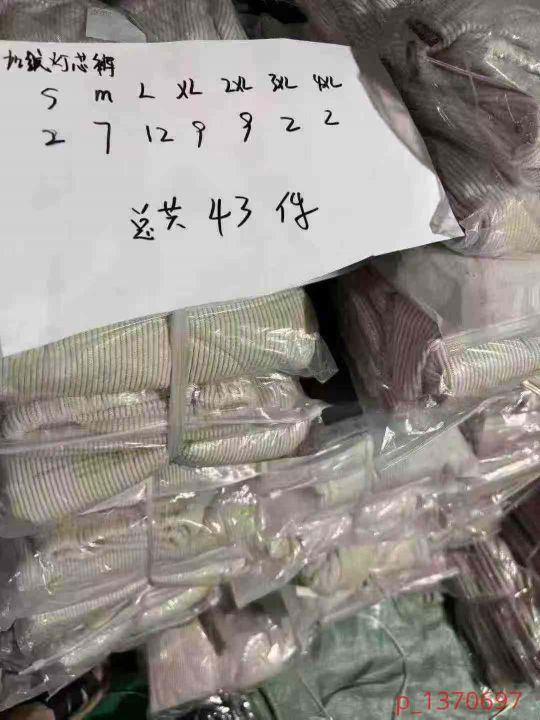 加绒灯芯裤
S M L XL 2XL 3XL 4XL
2 7 12 9 9 2 2
总共 43 件
p_1370697